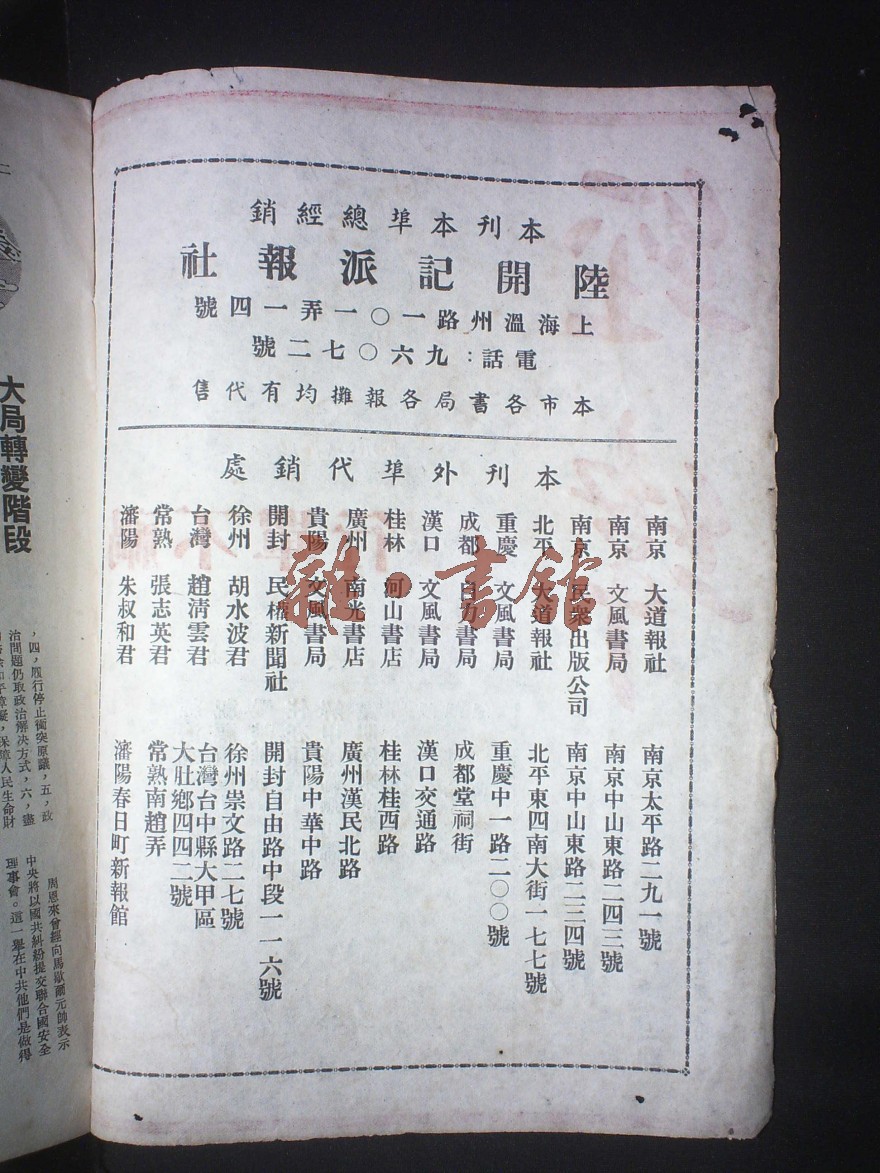 本刊本埠總經銷
陸開記派報社
上海溫州路一〇一弄一四號
電話：九六〇七二號
本市各書局各報攤均有代售
本刊外埠代銷處
南京 大道報社 南京太平路二九一號
南京 文風書局 南京中山東路二四三號
南京 民衆出版公司 南京中山東路二三四號
北平 大道報社 北平東四南大街一七七號
重慶 文風書局 重慶中一路二〇〇號
成都 自力書局 成都堂祠街
漢口 文風書局 漢口交通路
桂林 河山書店 桂林桂西路
廣州 南光書店 廣州漢民北路
貴陽 文風書局 貴陽中華中路
開封 民權新聞社 開封自由路中段一一六號
徐州 胡水波君 徐州崇文路二七號
台灣 趙清雲君 台灣台中縣大甲區
大肚鄉四四二號
常熟 張志英君 常熟南趙弄
瀋陽 朱叔和君 瀋陽春日町新報館
雜·書館
大局轉變階段
，四，履行停止衝突原議，五，政
治問題仍取政治解決方式，六，盡
保障人民生命財
周恩來曾經向馬歇爾元帥表示
中央將以國共糾紛提交聯合國安全
理事會。這一舉在中共他們是做得